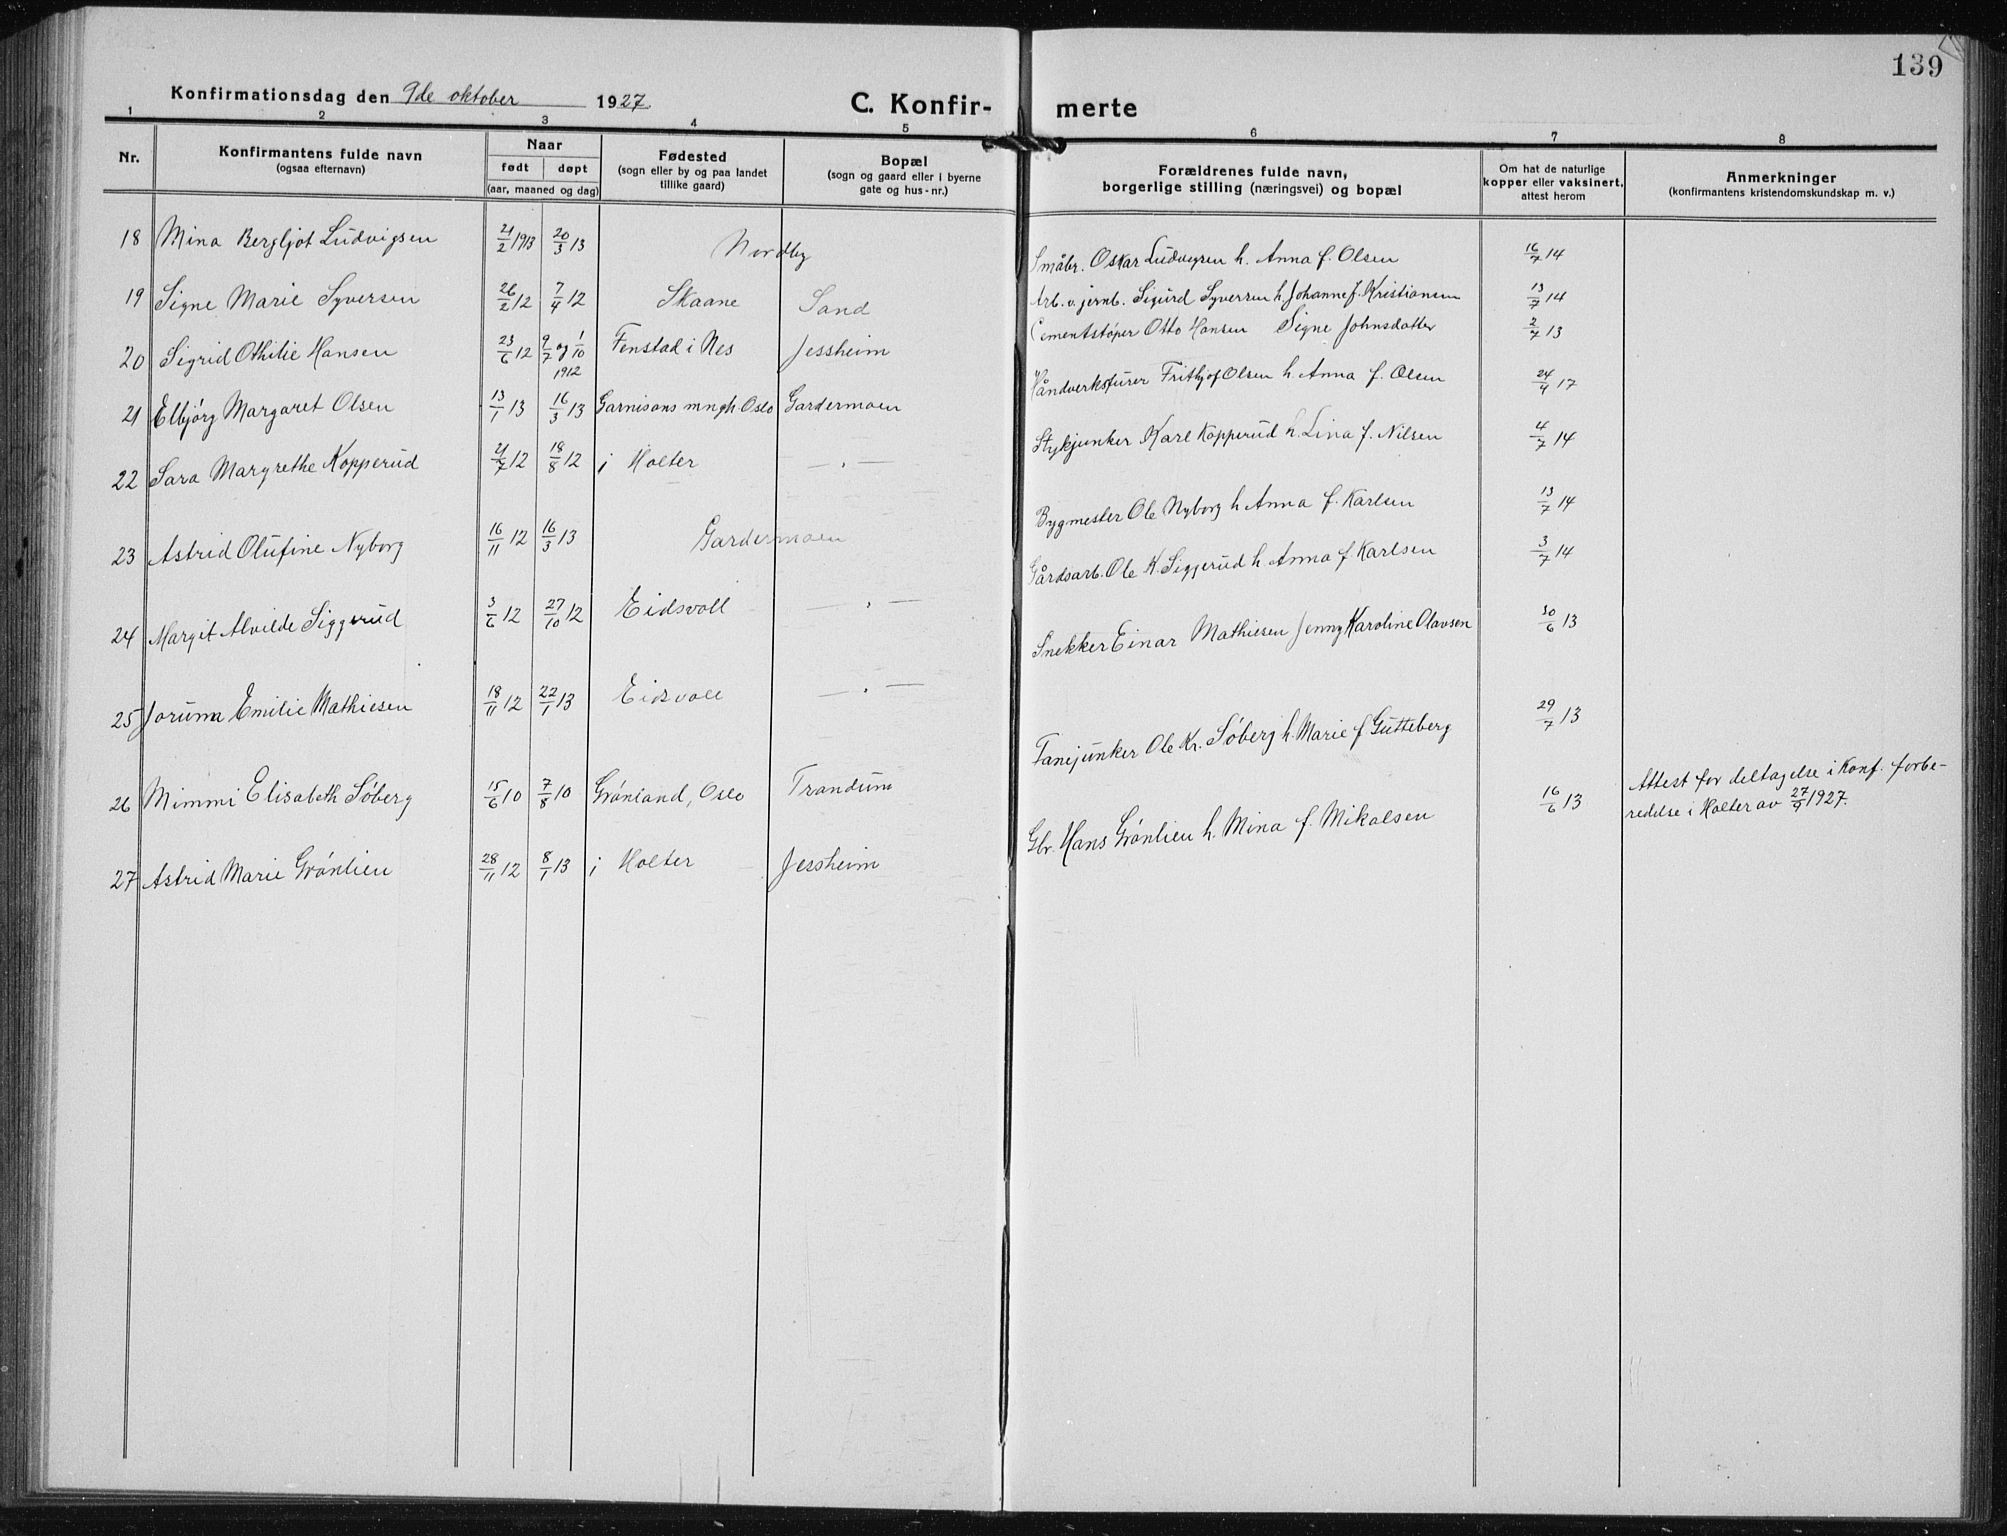 139
Konfirmationsdag den 9de oktober 1927
C. Konfir- merte
1 2 3 4 5 6 7 8
Nr.
Konfirmantens fulde navn
(ogsaa efternavn)
Naar
født døpt
(aar, maaned og dag)
Fødested
(sogn eller by og paa landet
tillike gaard)
Bopæl
(sogn og gaard eller i byerne
gate og hus-nr.)
Forældrenes fulde navn,
borgerlige stilling (næringsvei) og bopæl
Om hat de naturlige
kopper eller vaksinert,
attest herom
Anmerkninger
(konfirmantens kristendomskundskap m. v.)
18 Mina Bergljot Ludvigsen 21/2 1913 20/3 13 Nordby Småbr. Oskar Ludvigsen h. Anna f. Olsen 16/7 14
19 Signe Marie Syversen 26/2 12 7/4 12 Skaane Sand Arb. v. jernb. Sigurd Syversen h. Johanne f. Kristiansen 13/7 14
20 Sigrid Othilie Hansen 23/6 12 9/7 og 1/10 1912 Fenstad i Nes Jessheim Cementstøper Otto Hansen Signe Johnsdatter 2/7 13
21 Elbjørg Margaret Olsen 13/1 13 16/3 13 Garnisons mngh. Oslo Gardermoen Håndverksfurer Frithjof Olsen h. Anna f. Olsen 24/4 17
22 Sara Margrethe Kopperud 21/7 12 18/8 12 i Holter — " — Stykjunker Karl Kopperud h. Lina f. Nilsen 4/7 14
23 Astrid Olufine Nyborg 16/11 12 16/3 13 Gardermoen Bygmester Ole Nyborg h Anna f. Karlsen 13/7 14
24 Margit Alvilde Siggerud 3/6 12 27/10 12 Eidsvoll — " — Gårdsarb. Ole K. Siggerud h Anna f Karlsen 3/7 14
25 Jorunn Emilie Mathiesen 18/11 12 22/1 13 Eidsvoll — " — Snekker Einar Mathiesen Jenny Karoline Olavsen 30/6 13
26 Mimmi Elisabeth Søberg 15/6 10 7/8 10 Grønland, Oslo Trandum Fanejunker Ole Kr. Søberg h. Marie f Gutteberg 29/7 13 Attest for deltagelse i Konf. forbe-
redelse i Holter av 27/9 1927.
27 Astrid Marie Grønlien 28/11 12 8/1 13 i Holter Jessheim Gbr. Hans Grønlien h. Mina f. Mikalsen 16/6 13